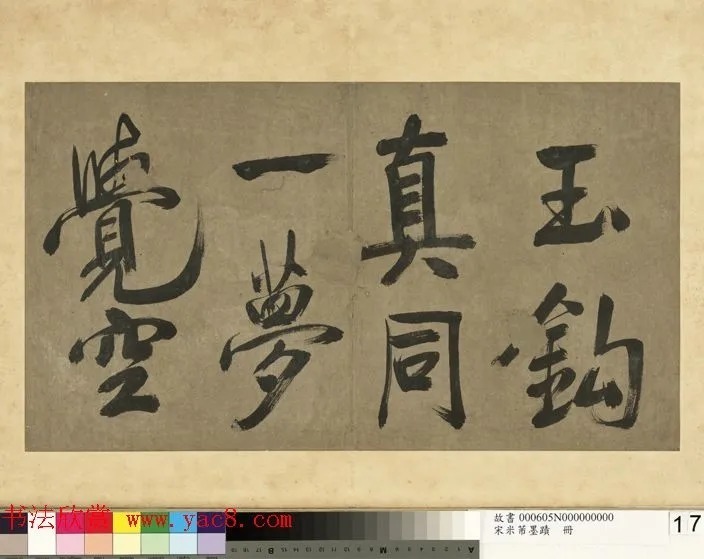 玉鈎
真同
一夢
覺空
书法欣赏 www.yac8.com
故書 000605N000000000
宋米芾墨蹟 冊
17